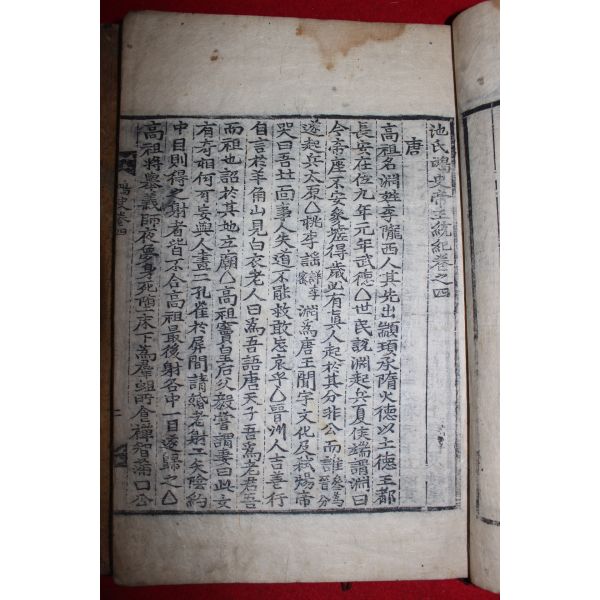 池氏鴻史帝王統紀卷之四
唐
高祖名淵姓李隴西人其先出顓頊承隋火德以土德王都
長安在位九年元年武德△世民說淵起兵夏侯端謂淵曰
今帝座不安參墟得歲必有眞人起於其分非公而誰參爲晉分
遂起兵太原△桃李謠詳李密淵爲唐王聞宇文化及弑煬帝
哭曰吾北面事人失道不能救敢忘哀乎△晉州人吉善行
自言於羊角山見白衣老人曰爲吾語唐天子吾爲老君吾
而祖也詔於其地立廟△高祖竇皇后父毅嘗謂妻曰此女
有奇相何可妄與人畫二孔雀於屛間請婚者射二矢陰約
中目則得之射者皆不合高祖最後射各中一目遂歸之△
高祖將擧義師夜夢身死墮床下爲群蛆所食禪智滿口公
鴻史卷四